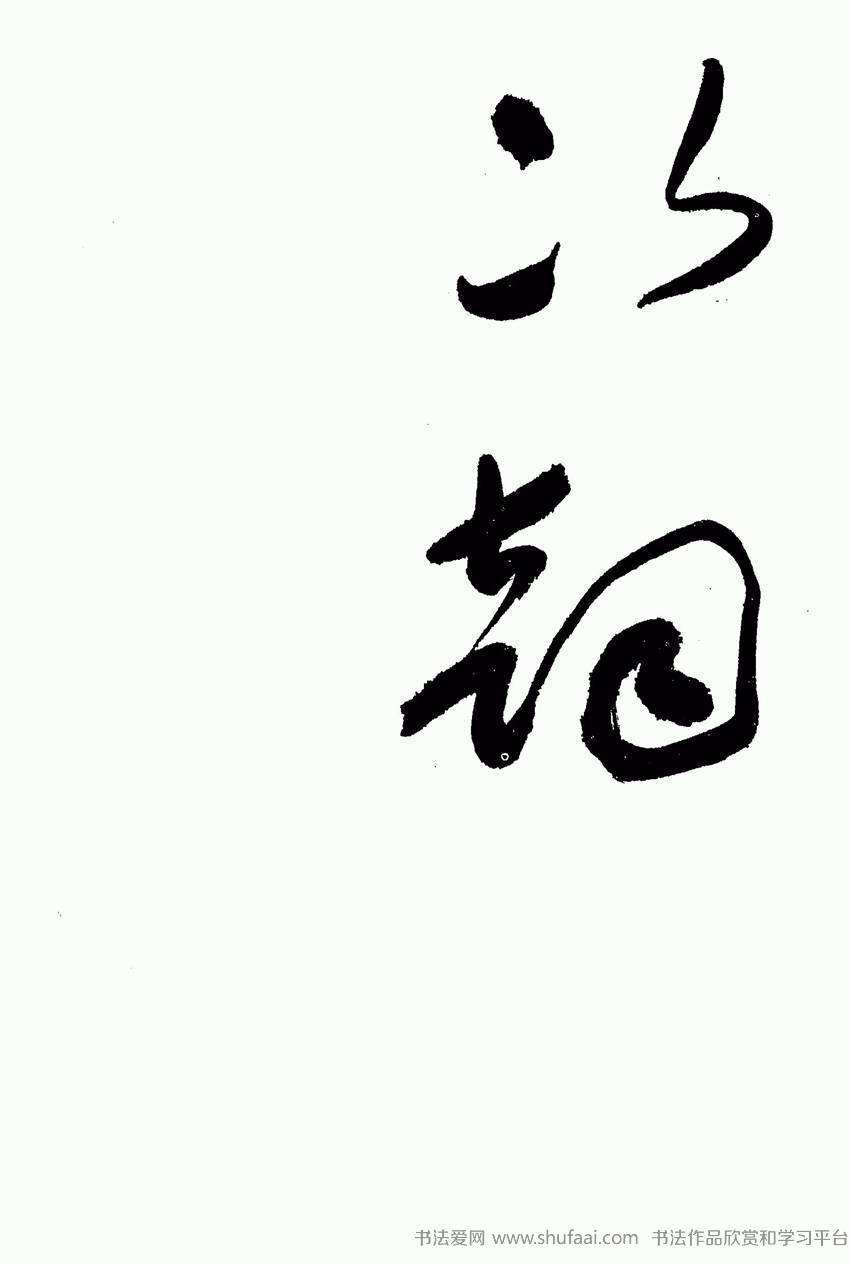 次韵
书法爱网 www.shufaai.com 书法作品欣赏和学习平台